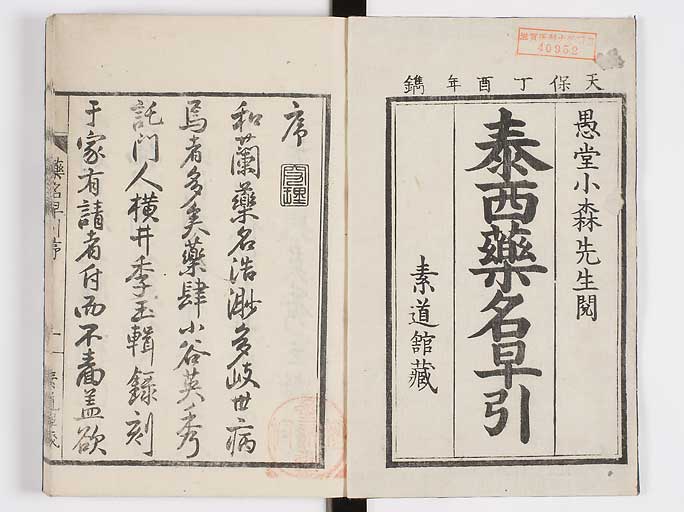 天保丁酉年鐫
愚堂小森先生閲
泰西藥名早引
素道館藏
40952
序
和蘭藥名浩渺多岐世病
焉者多矣藥肆小谷英秀
託門人横井季玉輯録刻
于家有請者付而不鬻盖欲
藥名早引序